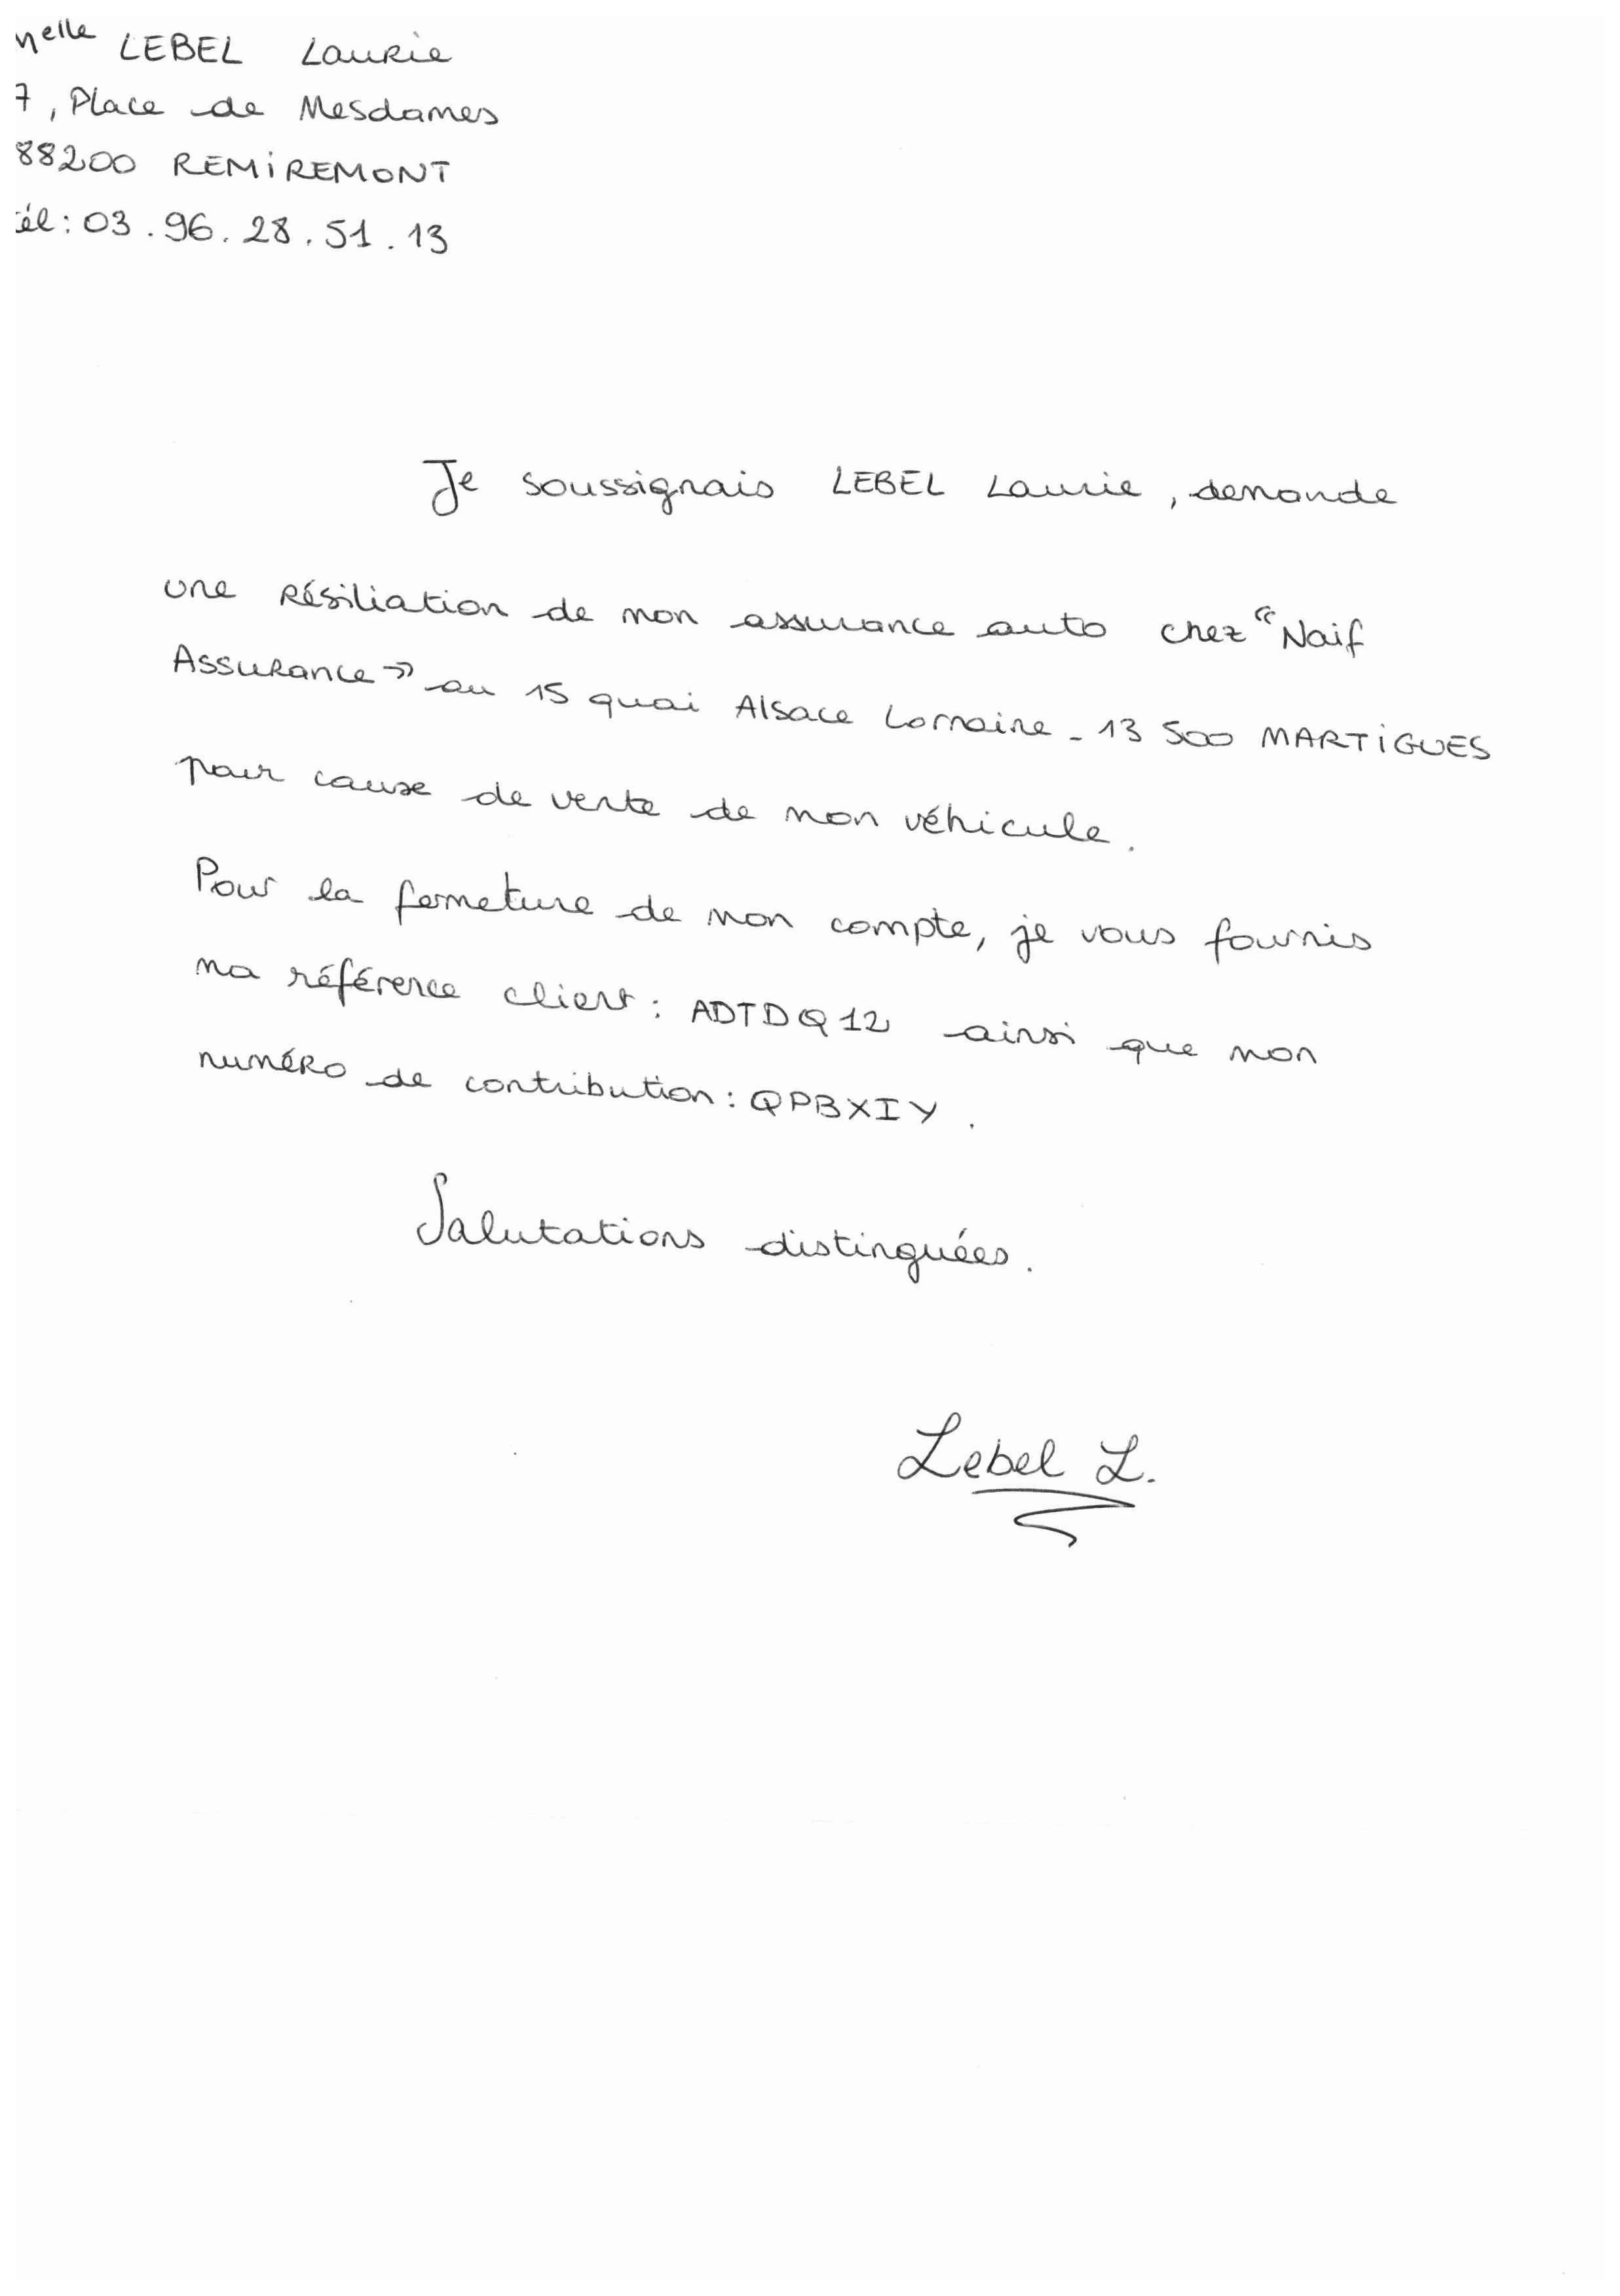 Melle LEBEL Laurie
7, Place de Mesdames
88200 REMIREMONT
tél : 03.96.28.51.13
Je soussignais LEBEL Laurie, demande
une Résiliation de mon assurance auto chez "Naif
Assurance" au 15 quai Alsace Lorraine - 13 500 MARTIGUES
pour cause de vente de mon véhicule.
Pour la fermeture de mon compte, je vous fournis
ma référence client : ADTDQ12 ainsi que mon
numéro de contribution : QPBXIY.
Salutations distinguées.
Lebel L.